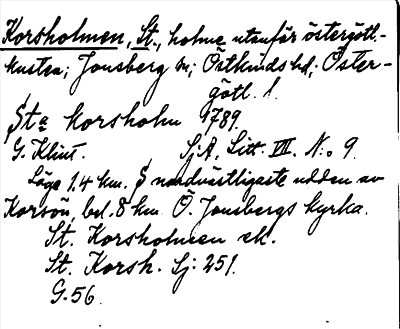 Korsholmen, St., holme utanför östergötl.-
kusten; Jonsberg sn; Östkinds hd; Öster-
götl. l.
Sta Korsholm 1789.
G. Klint. SjA, Litt. VII. N:o 9.
Läge 1.4 km. S nordvästligaste udden av
Korsön, bel. 8 km Ö. Jonsbergs kyrka.
St. Korsholmen ek.
St. Korsh. Sj: 251.
G. 56.